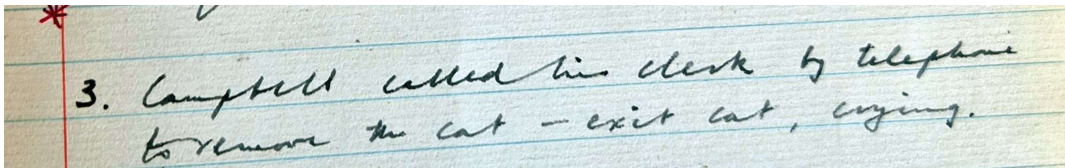 3. Campbell called his clerk by telephone
to remove the cat – exit cat, crying.